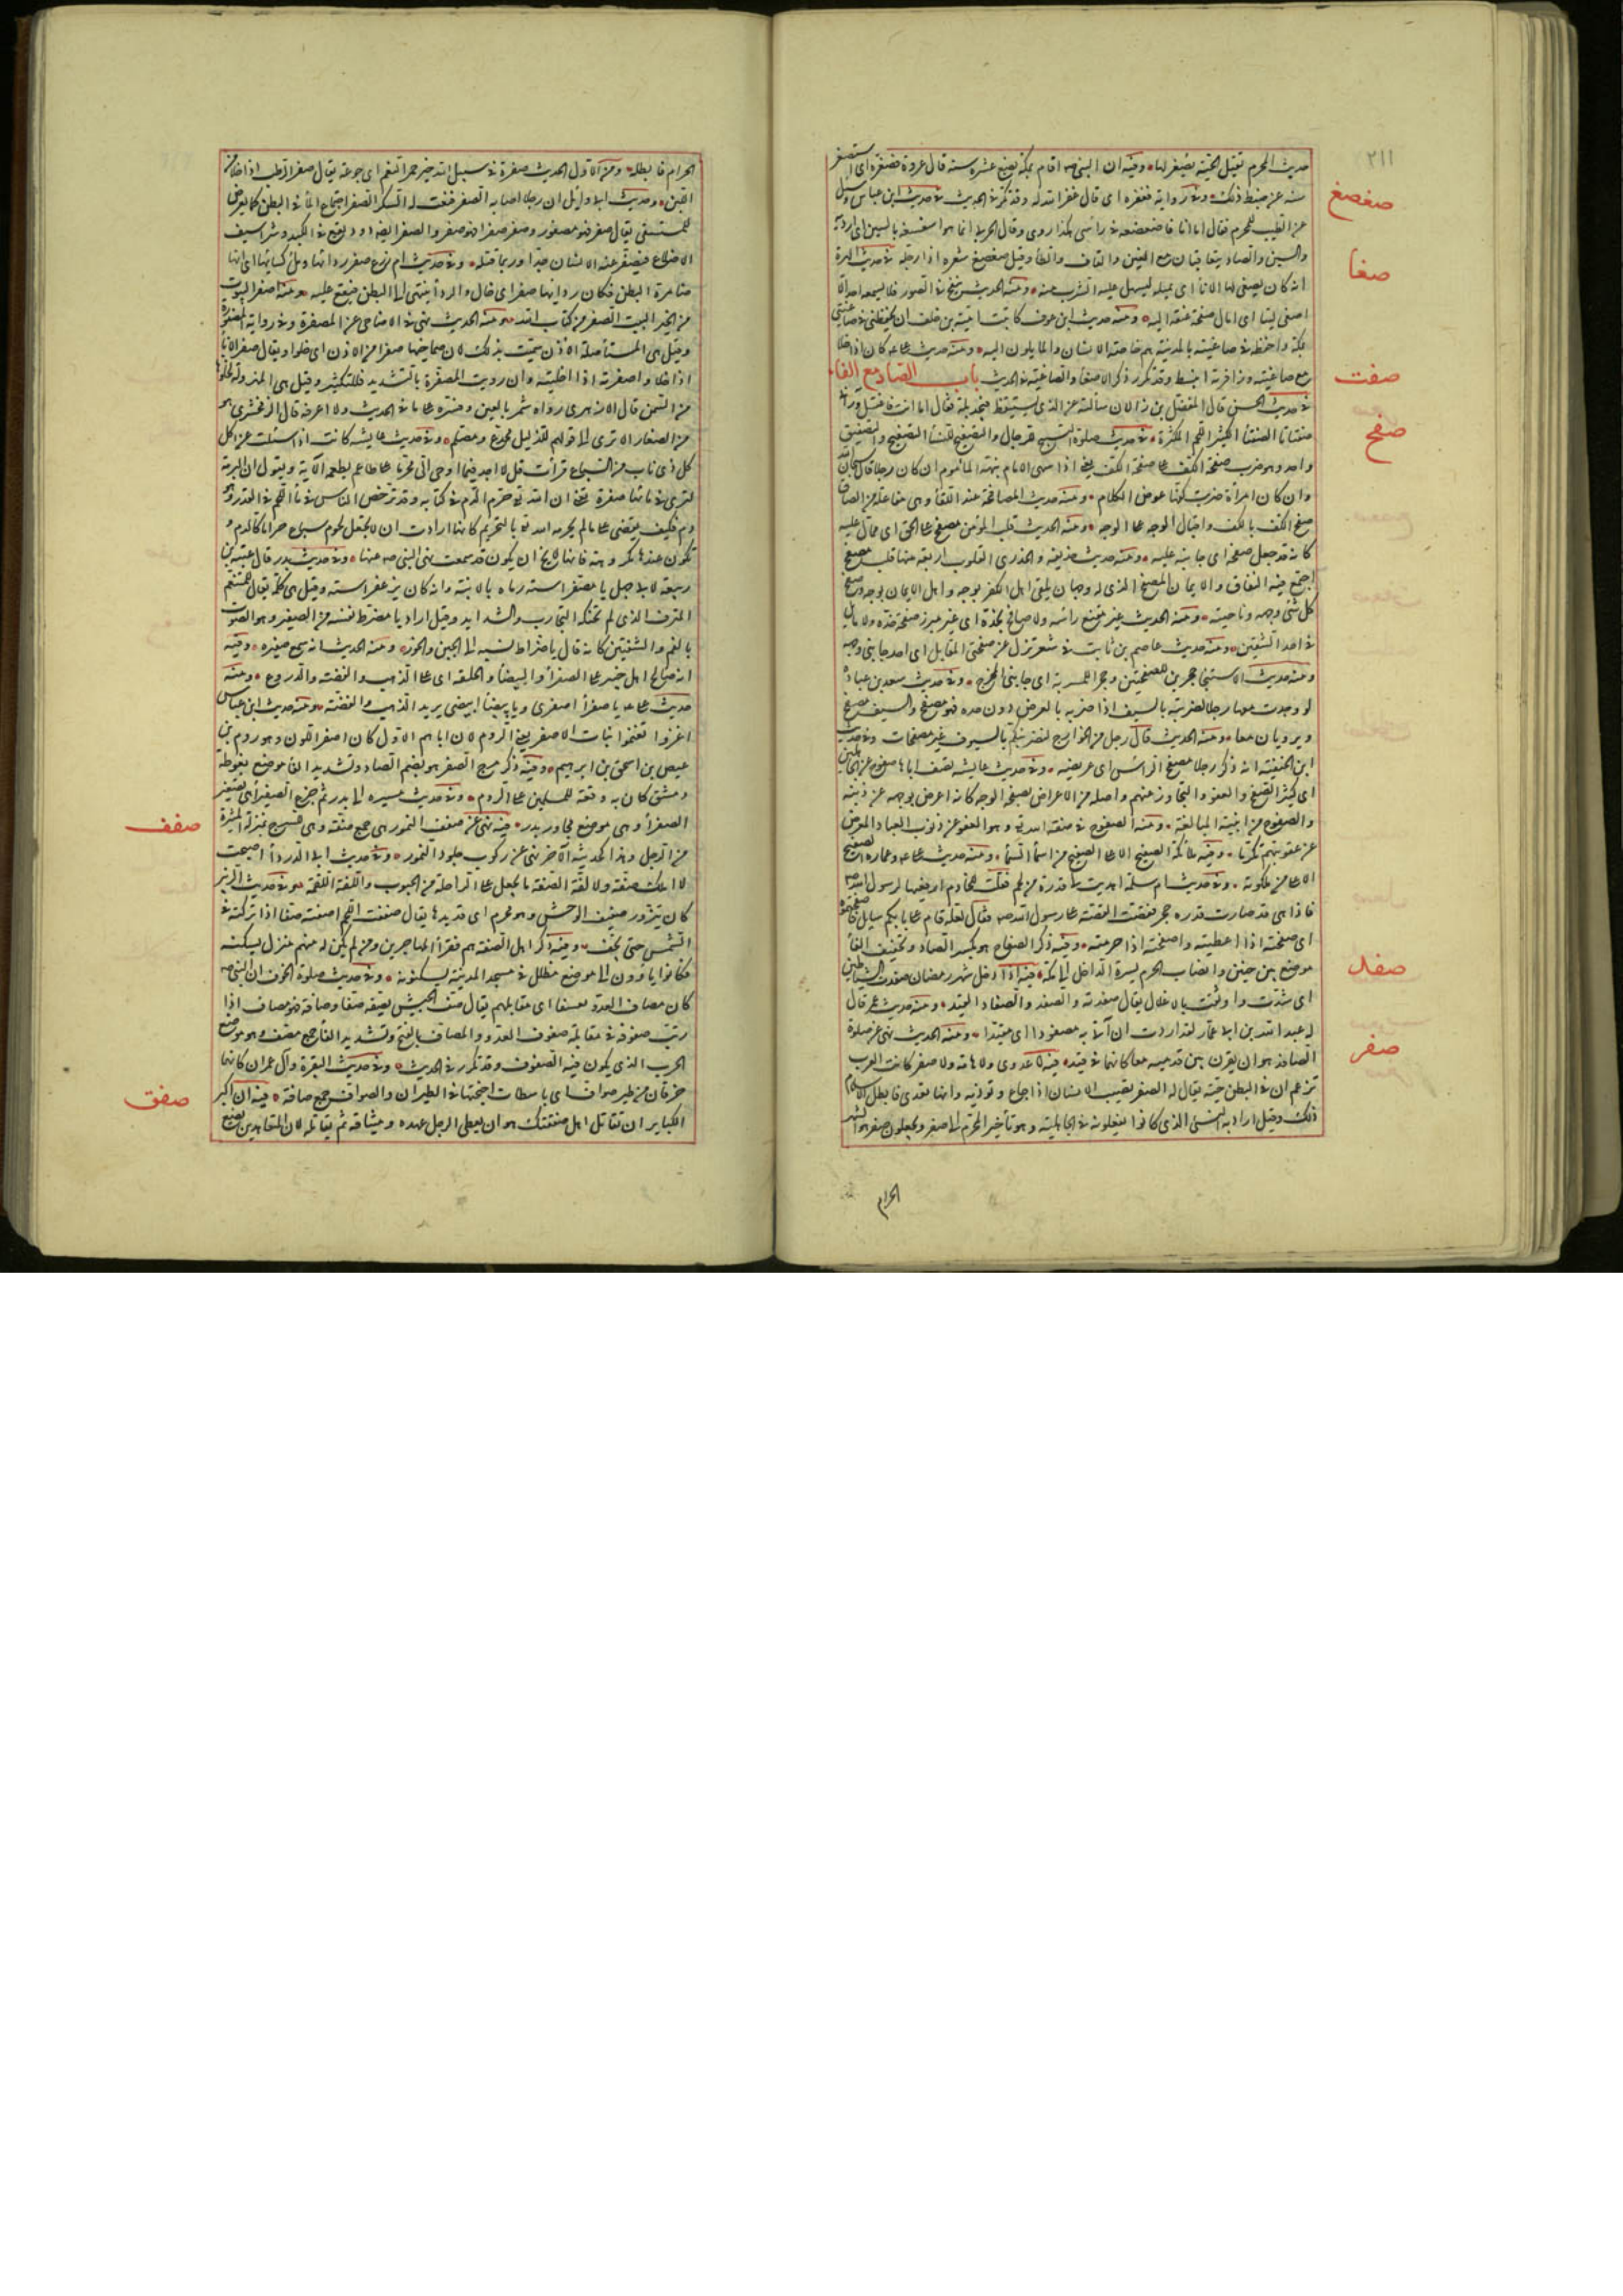 ٢١١
حديث المحرم يقتل الحية بصغر لها وفيه ان النبي صه اقام بمكة بضع عشرة سنة قال عروة فصغره اى استصغر
سنه عن ضبط ذلك وفى رواية فغفره اى قال غفر الله له وقد تكرر فى الحديث فى حديث ابن عباس وسئل
صغصغ
عن الطيب للمحرم فقال اما انا فاصغصغه فى رأسى هكذا روى وقال الحربى انما هو اسغسغه بالسين اى ارويه
والسين والصاد يتعاقبان مع الغين والقاف والطاء وقيل صغصغ شعره اذا رجله فى حديث الهرة
صغا
انه كان يصغى لها الاناء اى يميله ليسهل عليها الشرب منه ومنه الحديث ينفخ فى الصور فلا يسمعه احد الا
اصغى ليتا اى امال صفحة عنقه اليه ومنه حديث ابن عوف كاتبت امية بن خلف ان يحفظنى فى صاغيتى
بمكة واحفظه فى صاغيته بالمدينة هم خاصة الانسان والمايلون اليه ومنه حديث على كان اذا خلا
مع صاغيته وزافرته انبسط وقد تكرر ذكر الاصغاء والصاغية فى الحديث باب الصاد مع الفاء
صفت
فى حديث الحسن قال المفضل بن رالان سألته عن الذى يستيقظ فيجد بلة فقال اما انت فاغتسل ورآنى
صفتاتا الصفتات الكثير اللحم المكتنزه فى حديث صلوة التسبيح للرجال والتصفيح للنساء التصفيح والتصفيق
صفح
واحد وهو ضرب صفحة الكف على صفحة الكف يعنى اذا سهى الامام ينبهه المأموم ان كان رجلا قال سبحان الله
وان كان امرأة ضربت كفها عوض الكلام ومنه حديث المصافحة عند اللقاء وهى مفاعلة من الصاق
صفح الكف بالكف واقبال الوجه على الوجه ومنه الحديث قلب المؤمن مصفح على الحق اى ممال عليه
كانه قد جعل صفحه اى جانبه عليه ومنه حديث حذيفه والخدرى القلوب اربعة منها قلب مصفح
اجتمع فيه النفاق والايمان المصفح الذى له وجهان يلقى اهل الكفر بوجه واهل الايمان بوجه وصفح
كل شئ وجهه وناحيته ومنه الحديث غير مقنع رأسه ولا صافح بخده اى غير مبرز صفحة خده ولا مايل
فى احد الشقين ومنه حديث عاصم بن ثابت فى شعر تزل عن صفحتى المعابل اى احد جانبى وجهه
ومنه حديث الاستنجا حجرين للصفحتين وحجرا للمسربة اى جانبى المخرج وفى حديث سعد بن عبادة
لو وجدت معها رجلا لضربته بالسيف غير مصفح يقال اصفحه بالسيف اذا ضربه بالعرض دون حده فهو مصفح والسيف مصفح
ويرويان معا ومنه الحديث قال رجل من الخوارج لنضربنكم بالسيوف غير مصفحات وفى حديث
ابن الحنفية انه ذكر رجلا مصفح الرأس اى عريضه وفى حديث عايشه تصف اباها صفوح عن الجاهلين
اى كثير الصفح والعفو والتجاوز عنهم واصله من الاعراض بصفحة الوجه كانه اعرض بوجهه عن ذنبه
والصفوح من ابنية المبالغة ومنه الصفوح فى صفة الله تعالى وهو العفو عن ذنوب العباد المعرض
عن عقوبتهم تكرما وفيه ملائكة الصفيح الاعلى الصفيح من اسماء السماء ومنه حديث على وعماره الصفيح
الاعلى من ملكوته وفى حديث ام سلمة اهديت لى فدرة من لحم فقلت للخادم ارفعيها لرسول الله صه
فاذا هى قد صارت فدرة حجر فقصصت القصة على رسول الله صه فقال لعله قام على بابكم سايل فاصفحتموه
اى صفحته اذا اعطيته واصفحته اذا حرمته وفيه ذكر الصفاح هو بكسر الصاد وتخفيف الفاء
موضع بين حنين وانصاب الحرم يسرة الداخل الى مكة فيه اذا دخل شهر رمضان صفدت الشياطين
صفد
اى شدت واوثقت بالاغلال يقال صفدته والصفد والصفاد القيد ومنه حديث عمر قال
له عبد الله بن ابى عمار لقد اردت ان آتى به مصفودا اى مقيدا ومنه الحديث نهى عن صلوة
الصافد هو ان يقرن بين قدميه معا كانهما فى قيد فيه لا عدوى ولا هامة ولا صفر كانت العرب
صفر
تزعم ان فى البطن حية يقال له الصفر تصيب الانسان اذا جاع وتوذيه وانها تعدى فابطل الاسلام
ذلك وقيل اراد به النسئ الذى كانوا يفعلونه فى الجاهلية وهو تأخير المحرم الى صفر ويجعلون صفر هو الشهر
الحرام
الحرام فابطله ومن الاول الحديث صفرة فى سبيل الله خير من حمر النعم اى جوعة يقال صفر الوطب اذا خلا من
اللبن وحديث ابى وايل ان رجلا اصابه الصفر فنعت له السكر الصفر اجتماع الماء فى البطن كما يعرض
للمستسقى يقال صفر فهو مصفور وصفر صفرا فهو صفر والصفر ايضا دود يقع فى الكبد وشراسيف
الاضلاع فيصفر عنه الانسان جدا وربما قتله وفى حديث ام زرع صفر ردائها وملء كسائها اى انها
ضامرة البطن فكان رداءها صفر اى خال والرداء ينتهى الى البطن فيقع عليه ومنه اصفر البيوت
من الخير البيت الصفر من كتاب الله ومنه الحديث نهى فى الاضاحى عن المصفرة وفى رواية المصفورة
وقيل هى المستأصلة الاذن سميت بذلك لان صماخيها صفرا من الاذن اى خلوا ويقال صفر الاناء
اذا خلا واصفرته اذا اخليته وان رويت المصفرة بالتشديد فللتكثير وقيل هى المهزولة لخلوها
من السمن قال الازهرى رواه شمر بالغين وفسره على ما فى الحديث ولا اعرفه قال الزمخشرى هو
من الصغار الا ترى الى قولهم للذليل مجدع ومصلم وفى حديث عايشه كانت اذا سئلت عن اكل
كل ذى ناب من السباع قرأت قل لا اجد فيما اوحى الى محرما على طاعم يطعمه الاية وتقول ان البرمة
لترى فى مائها صفرة يعنى ان الله تعالى حرم الدم فى كتابه وقد ترخص الناس فى ماء اللحم فى القدر وهو
دم فكيف يقضى على ما لم يحرمه الله تعالى بالتحريم كانها ارادت ان لا يجعل لحوم سباع حراما كالدم و
تكون عندها مكروهة فانها لا تخ ان يكون قد سمعت نهى النبى صه عنها وفى حديث بدر قال عتبة بن
ربيعة لابى جهل يا مصفر استه رماه بالابنة وانه كان يزعفر استه وقيل هى كلمة يقال للمتنعم
المترف الذى لم تحنكه التجارب والشدايد وقيل اراد يا مضرط نفسه من الصفير وهو الصوت
بالفم والشفتين كانه قال يا ضراط نسبه الى الجبن والخور ومنه الحديث انه سمع صفيره وفيه
انه صالح اهل خيبر على الصفراء والبيضاء والحلقة اى على الذهب والفضة والدروع ومنه
حديث على يا صفراء اصفرى ويا بيضاء ابيضى يريد الذهب والفضة ومنه حديث ابن عباس
اغزوا تغنموا بنات الاصفر يعنى الروم لان اباهم الاول كان اصفر اللون وهو روم بن
عيص بن اسحق بن ابرهيم وفيه ذكر مرج الصفر هو بضم الصاد وتشديد الفاء موضع بغوطة
دمشق كان به وقعة للمسلمين على الروم وفى حديث مسيره الى بدر ثم جزع الصفيراء تصغير
الصفراء وهى موضع مجاور بدر فيه نهى عن صفف النمور هى جمع صفة وهى للسرج بمنزلة الميثرة
صفف
من الرحل وهذا كحديثه الآخر نهى عن ركوب جلود النمور وفى حديث ابى الدرداء اصبحت
لا املك صفة ولا لفة الصفة ما يجعل على الراحة من الحبوب واللفة اللقمة وفى حديث الزبير
كان يتزود صفيف الوحش وهو محرم اى قديدها يقال صففت اللحم اصفه صفا اذا تركته فى
الشمس حتى يجف وفيه ذكر اهل الصفة هم فقراء المهاجرين ومن لم يكن له منهم منزل يسكنه
فكانوا يأوون الى موضع مظلل فى مسجد المدينة يسكنونه وفى حديث صلوة الخوف ان النبى صه
كان مصاف العدو بعسفان اى مقابلهم يقال صف الجيش يصفه صفا وصافه فهو مصاف اذا
رتب صفوفه فى مقابلة صفوف العدو والمصاف بالفتح وتشديد الفاء جمع مصف وهو موضع
الحرب الذى يكون فيه الصفوف وقد تكرر فى الحديث وفى حديث البقرة وآل عمران كانهما
حزقان من طير صواف اى باسطات اجنحتها فى الطيران والصواف جمع صافة فيه ان اكبر
صفق
الكباير ان تقاتل اهل صفقتك هو ان يعطى الرجل عهده وميثاقه ثم يقاتله لان المتعاهدين يضع